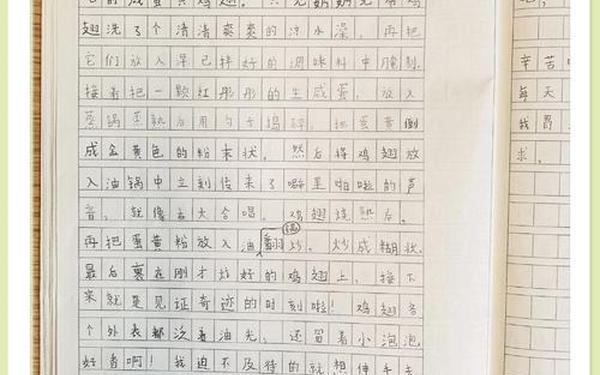 它的咸蛋黄鸡翅。只见奶奶先将鸡
翅洗了个清清爽爽的凉水澡,再把
它们放入早已拌好的调味料中腌制。
接着把一颗红彤彤的生咸蛋,放入
蒸锅蒸熟后用勺子捣碎,把蛋黄倒
成金黄色的粉末状。然后将鸡翅放
入油锅中立刻传来了噼里啪啦的声
音,就像在大合唱。鸡翅烧熟后。
再把蛋黄粉放入油锅翻炒。炒成糊状。
最后裹在刚才炸好的鸡翅上,接下
来就是见证奇迹的时刻啦!鸡翅各
个外表都泛着油光,还留着小泡泡
好香啊!我迫不及待的就想伸手去
辛苦
每天
我
求。